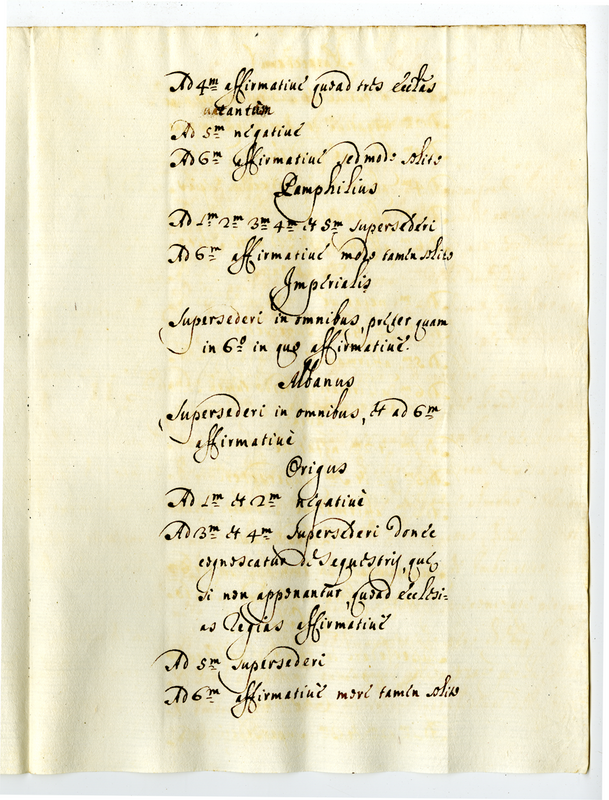 Ad 4m affirmativè quoad tres Eccl̃as
vacantes
Ad 5m negativè
Ad 6m affirmativè sed modo solito
Pamphilius
Ad 1m 2m 3m 4m et 5m supersederi
Ad 6m affirmativè modo tamen solito
Imperialis
Supersederi in omnibus, preter quam
in 6o in quo affirmativè.
Albanus
Supersederi in omnibus, et ad 6m
affirmativè
Origus
Ad 1m et 2m negativè
Ad 3m et 4m supersederi donec
cognoscatur de sequestrij, quę
si non apponantur, quoad Ecclesi-
as Regias affirmativè
Ad 5m supersederi
Ad 6m affirmativè more tamen solito